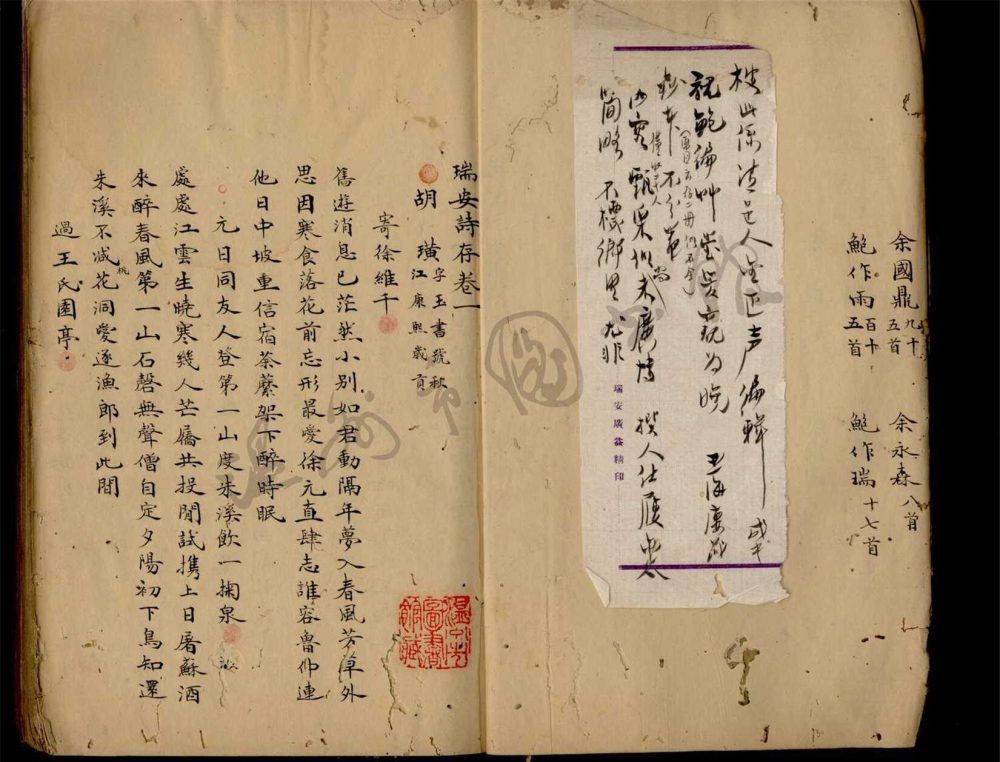 余國鼎九十五首 余永森八首
鮑作雨百十五首 鮑作瑞十七首
祝鮑編
内容甄采似未廣博 撰人仕履亦太
簡略 不標鄉里 尤非
瑞安廣益精印
瑞安詩存卷一
胡璜字玉書號秋江康熙歲貢
寄徐維千
舊遊消息已茫然小别如君動隔年夢入春風芳草外
思因寒食落花前忘形最愛徐元直肆志誰容魯仲連
他日中坡重信宿荼蘼架下醉時眠
元日同友人登第一山度朱溪飲一掬泉
處處江雲生曉寒幾人芒屩共投閒試攜上日屠蘇酒
來醉春風第一山石磬無聲僧自定夕陽初下鳥知還
朱溪不減桃花洞愛逐漁郎到此間
過王氏園亭
温州市圖書館藏